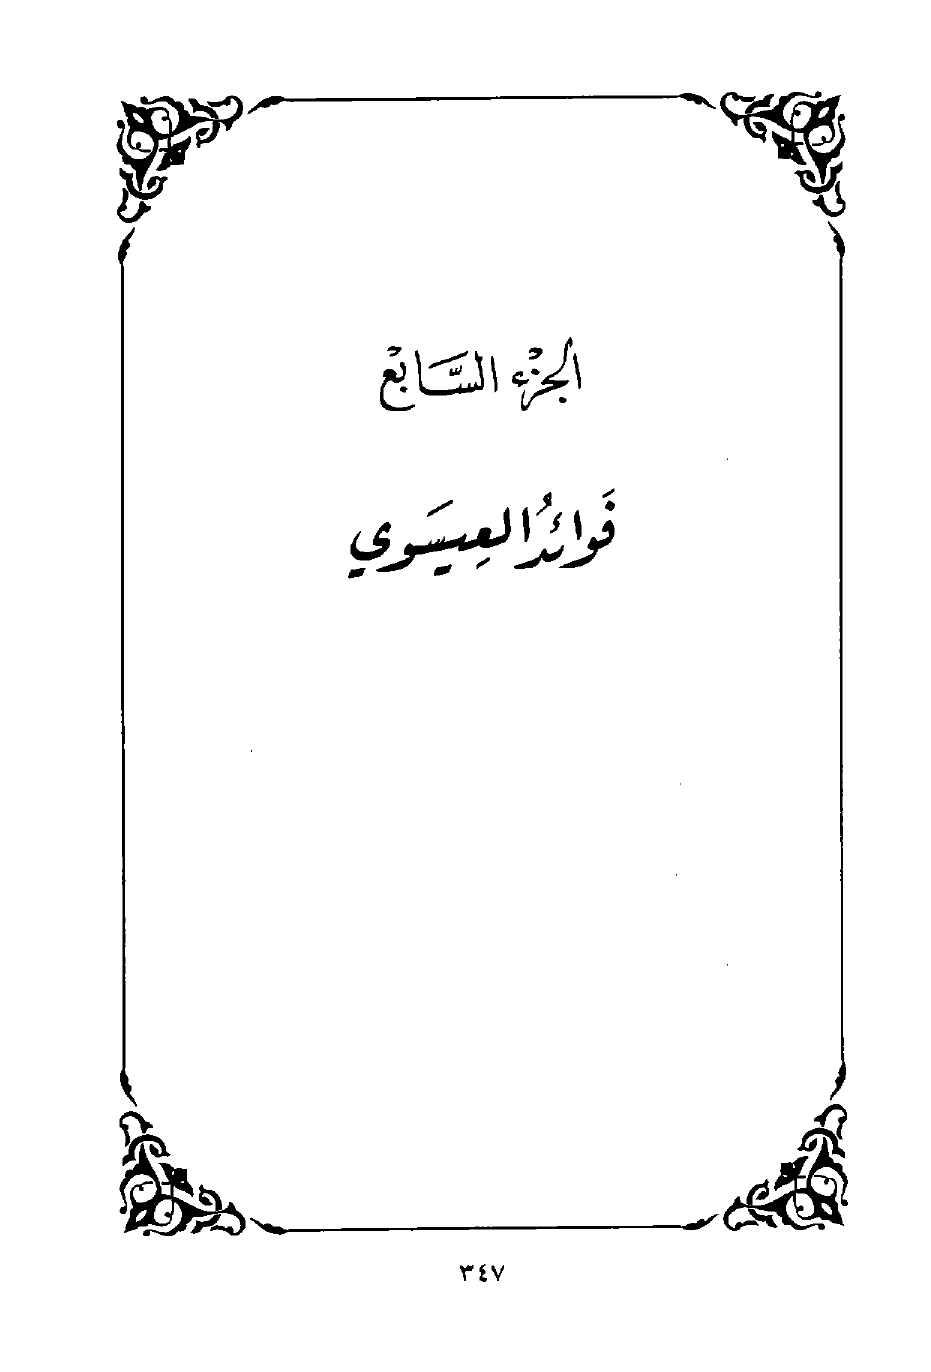 الجزءُ السَّابعُ
فَوائدُ العِيسَوي
٣٤٧